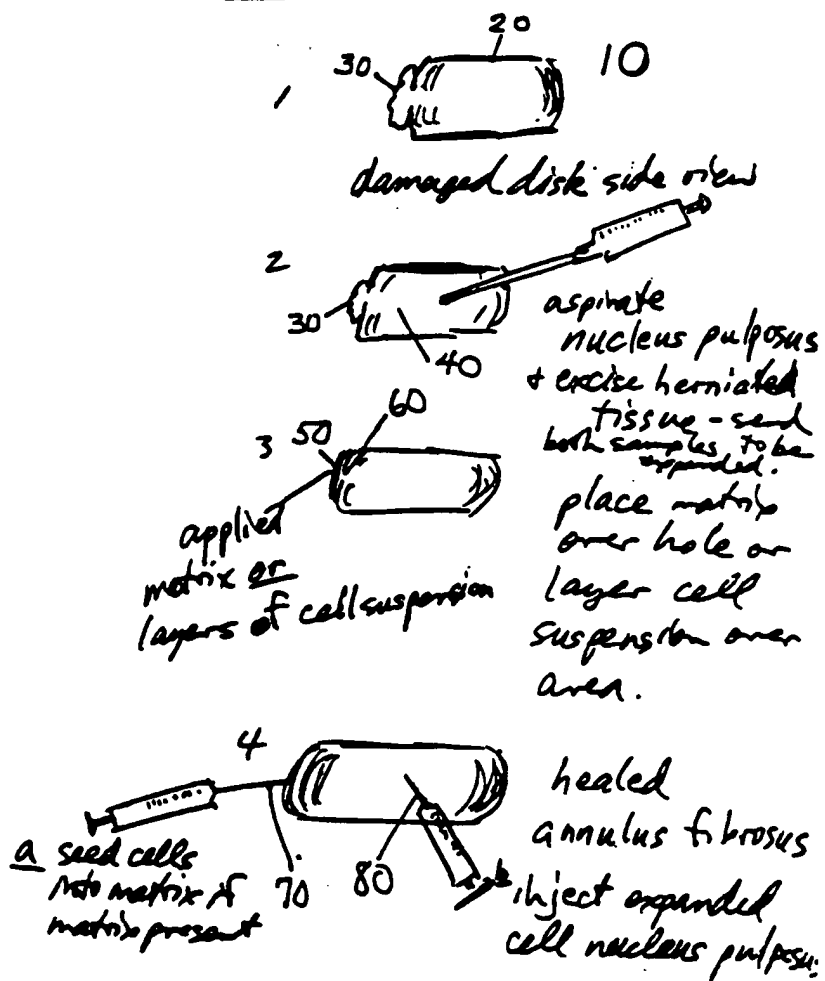 20
30
10
1
damaged disk side view
2
30
40
aspirate
nucleus pulposus
+ excise herniated
tissue - send
both samples to be
expanded.
3
50
60
applied
matrix or
layers of cell suspension
place matrix
over hole or
layer cell
suspension over
area.
4
70
80
a seed cells
into matrix if
matrix present
healed
annulus fibrosus
b
inject expanded
cell nucleus pulposus.